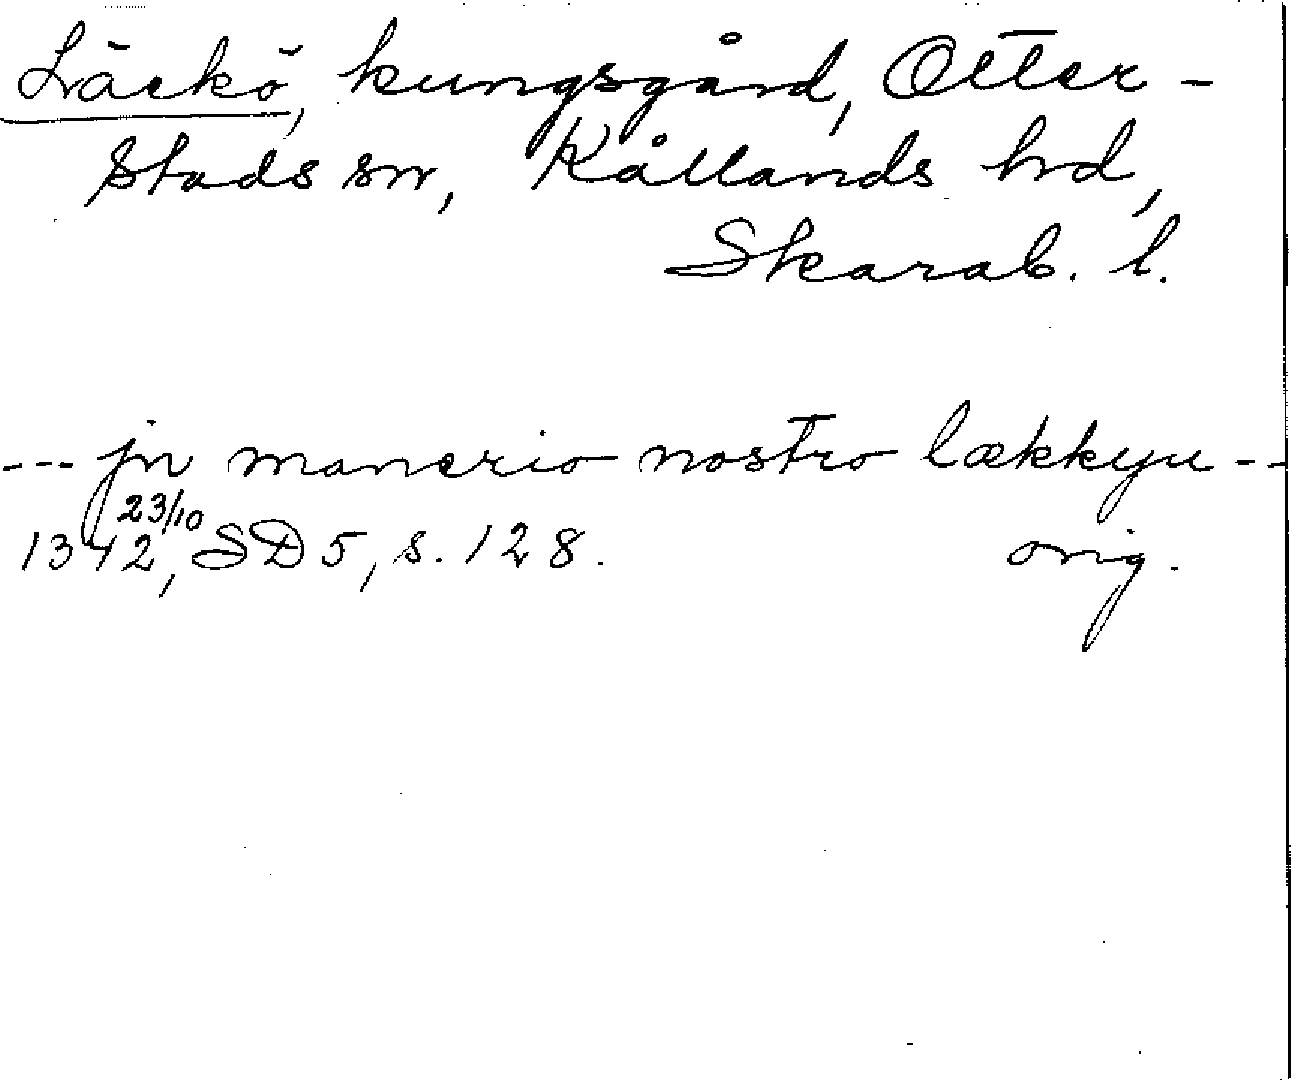 Läckö, kungsgård, Otter-
stads sn, Kållands hd,
Skarab. l.
--- jn manerio nostro lækkyu --
23/10
1342, SD 5, s. 128. orig.